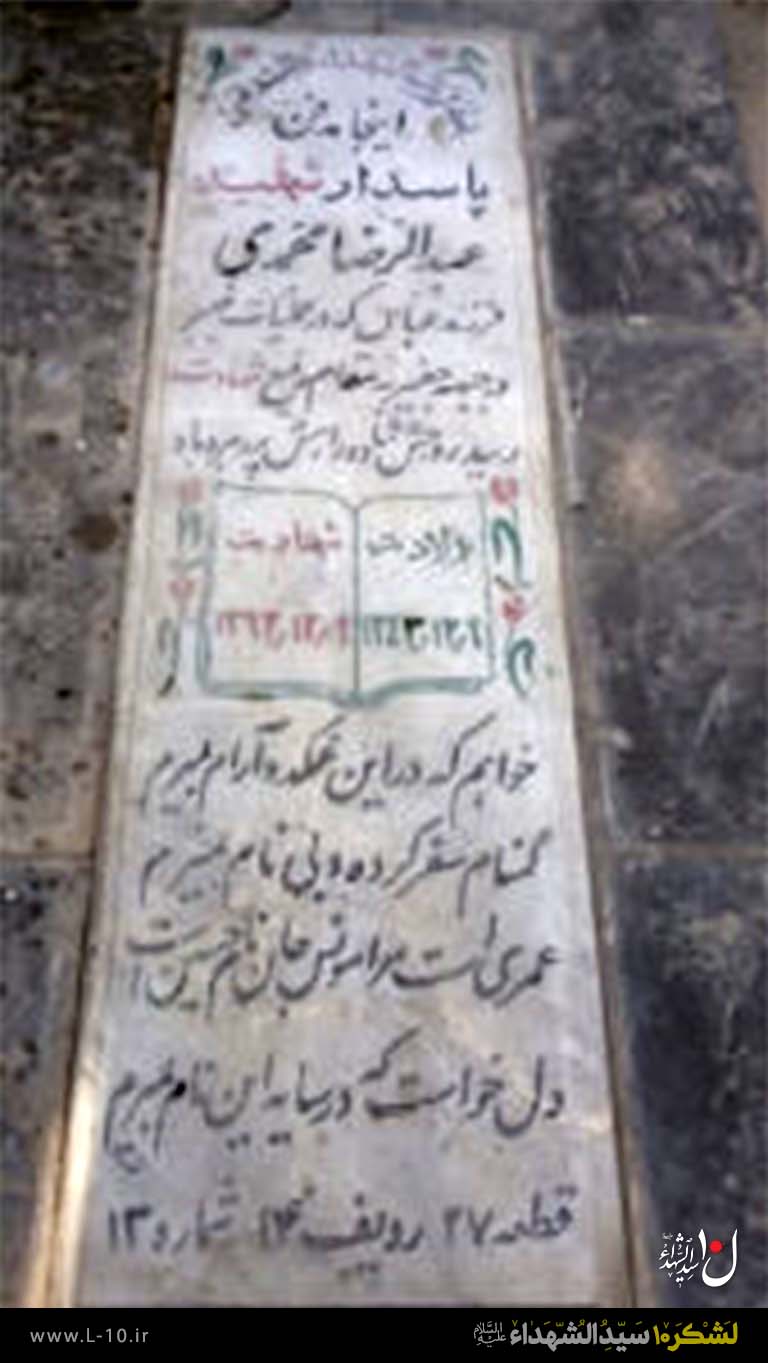 اینجا مدفن
پاسدار شهید
عبدالرضا محمدی
فرزند عباس که در عملیات خیبر
و جبهه خیبر به مقام رفیع شهادت
رسید روحش شاد و راهش پر رهرو باد
ولادت شهادت
خواهم که در این غمکده آرام بمیرم
گمنام سفر کرده و بی نام بمیرم
عمری است مرا مونس جان نام حسین است
دل خواست که در سایه این نام بمیرم
قطعه ۲۷ ردیف ۱۴ شماره ۱۳
لشکر۱۰ سیدالشهداء علیه السلام
www.L-10.ir